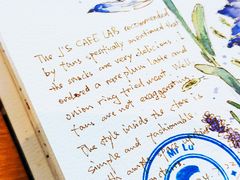 The J'S CAFE LAB recommended
by fans specifically mentioned that
the snacks are very delicious, I
ordered a rare plum sauce and
onion ring fried meat. Well
fans are not exaggerating.
The style inside the store is
simple and fashionable
Mr Lu